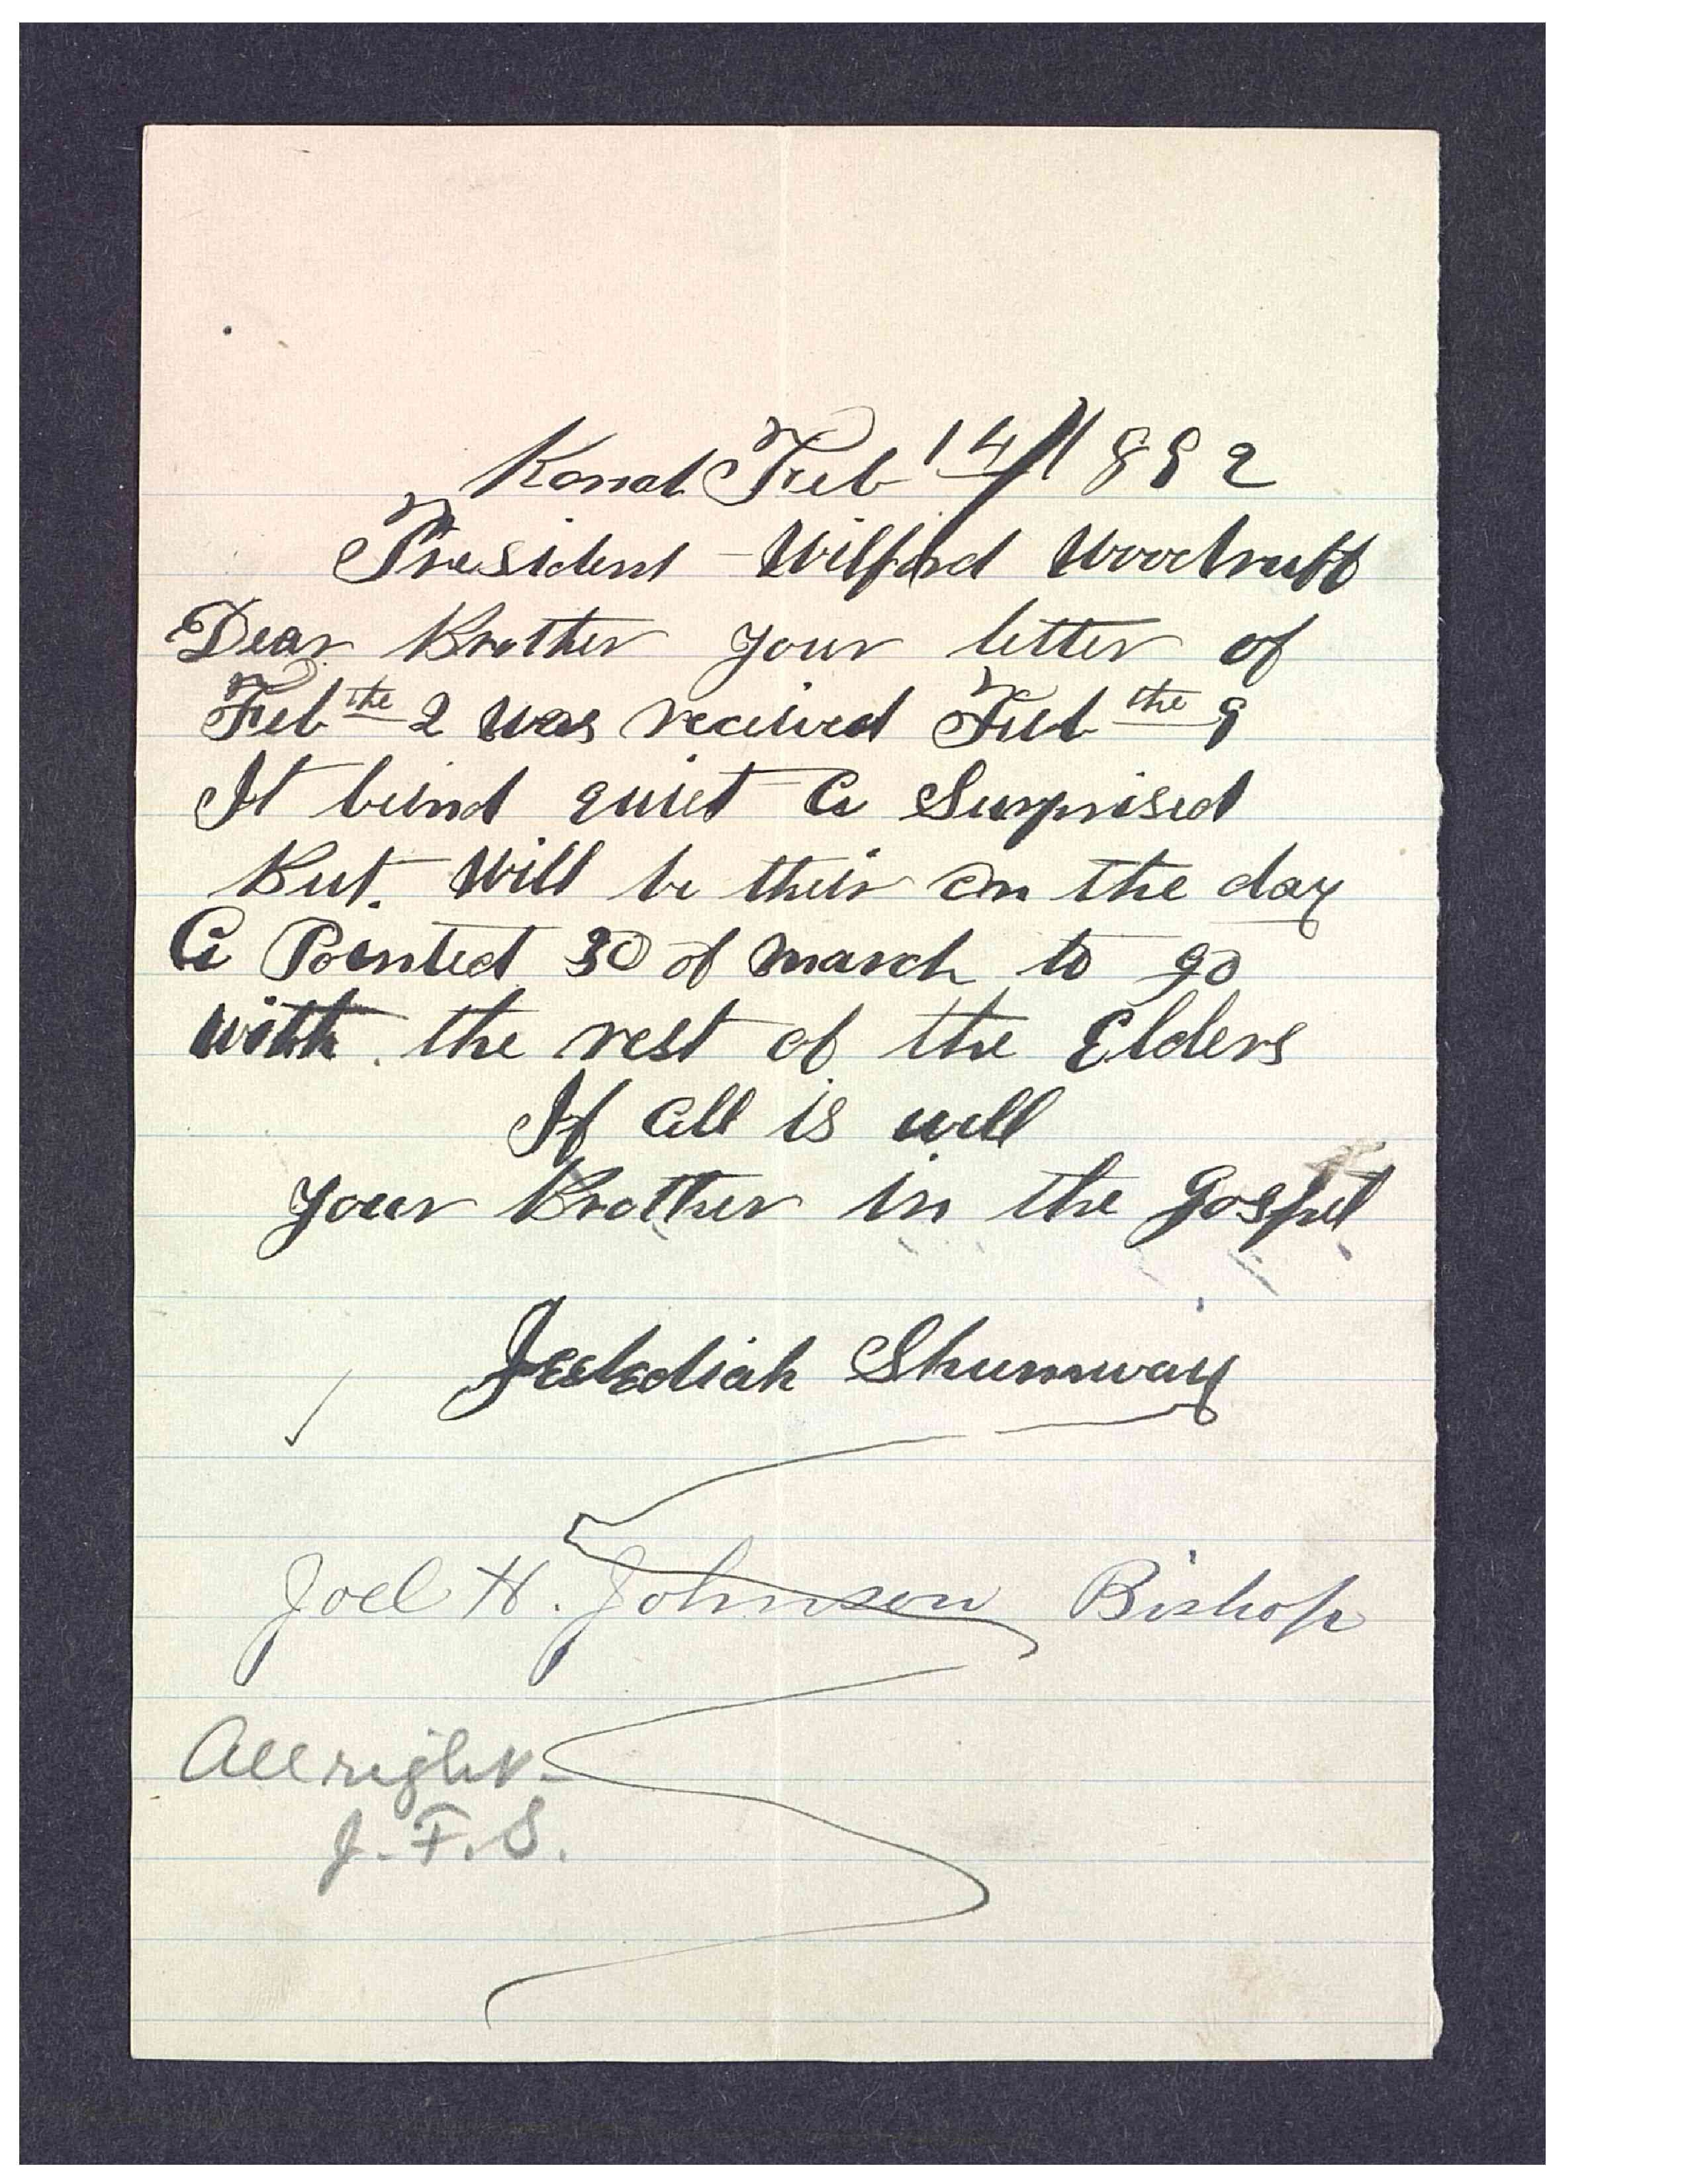 Kanab Feb 14/1892
President Wilford Woodruff
Dear Brother your letter of
Feb the 2 was received Feb the 9
It beind quiet a Surprised
But. Will be their on the day
a Pointed 30 of march to go
with the rest of the Elders
If all is well
your Brother in the gospel
Jedediah Shumway
Joel H. Johnson Bishop
All right-
J. F. S.